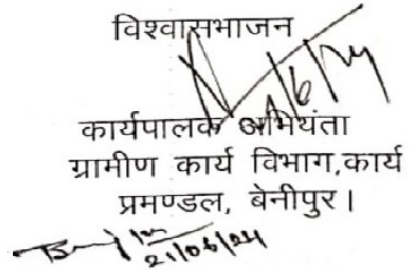 विश्वासभाजन
कार्यपालक अभियंता
ग्रामीण कार्य विभाग,कार्य
प्रमण्डल, बेनीपुर।
21/06/24